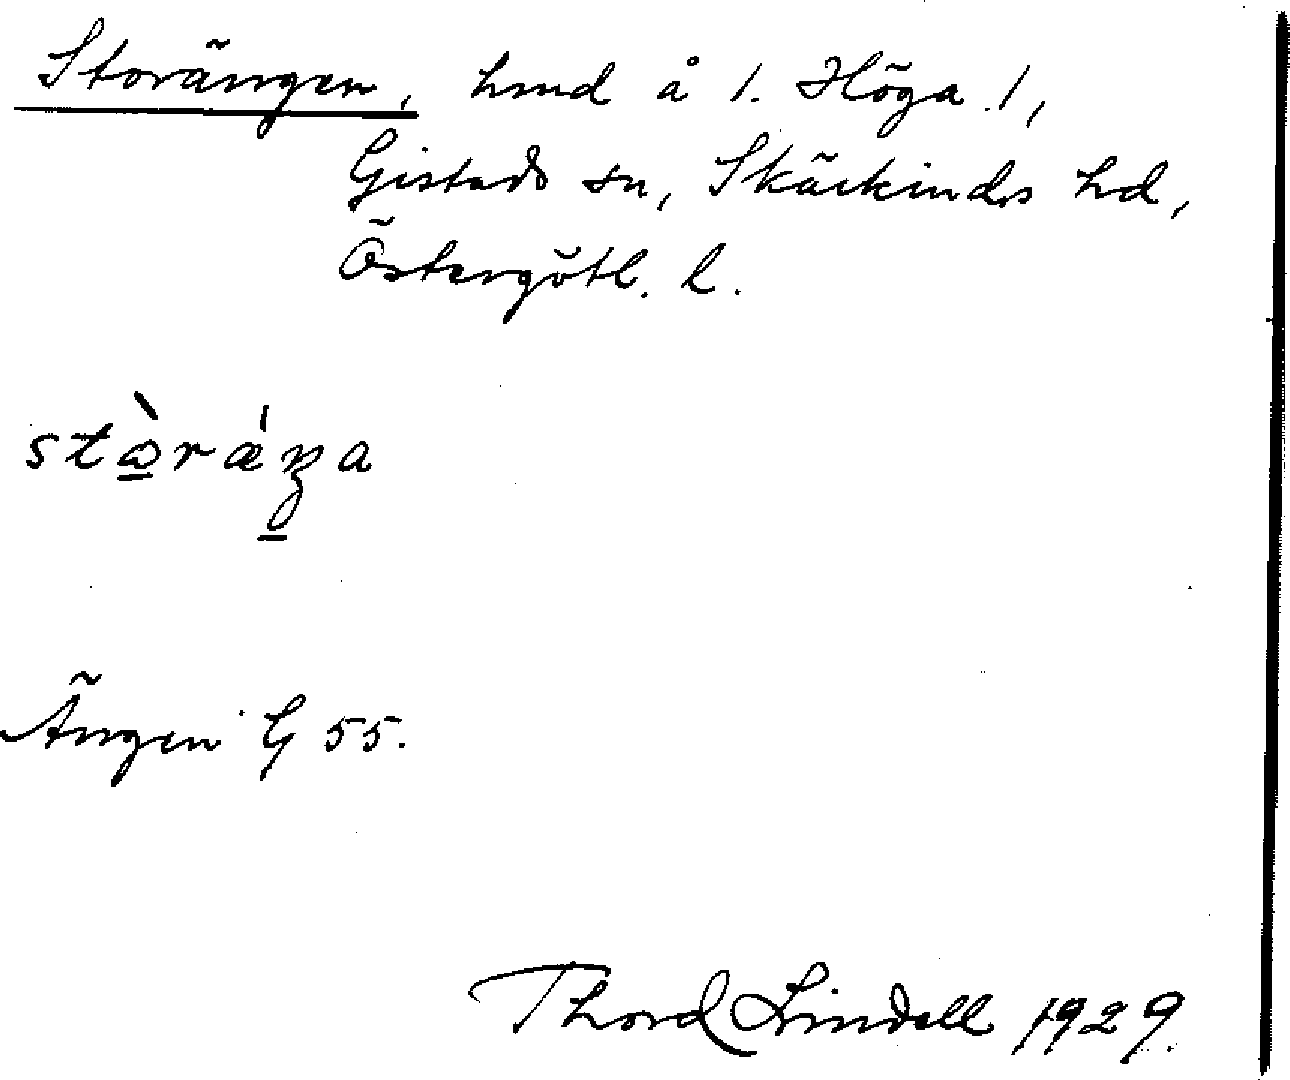 Storängen, hmd å 1. Höga 1,
Gistads sn, Skärkinds hd,
Östergötl. l.
stɷ̀rǽŋa
Ängen G 55.
Thord Lindell 1929.